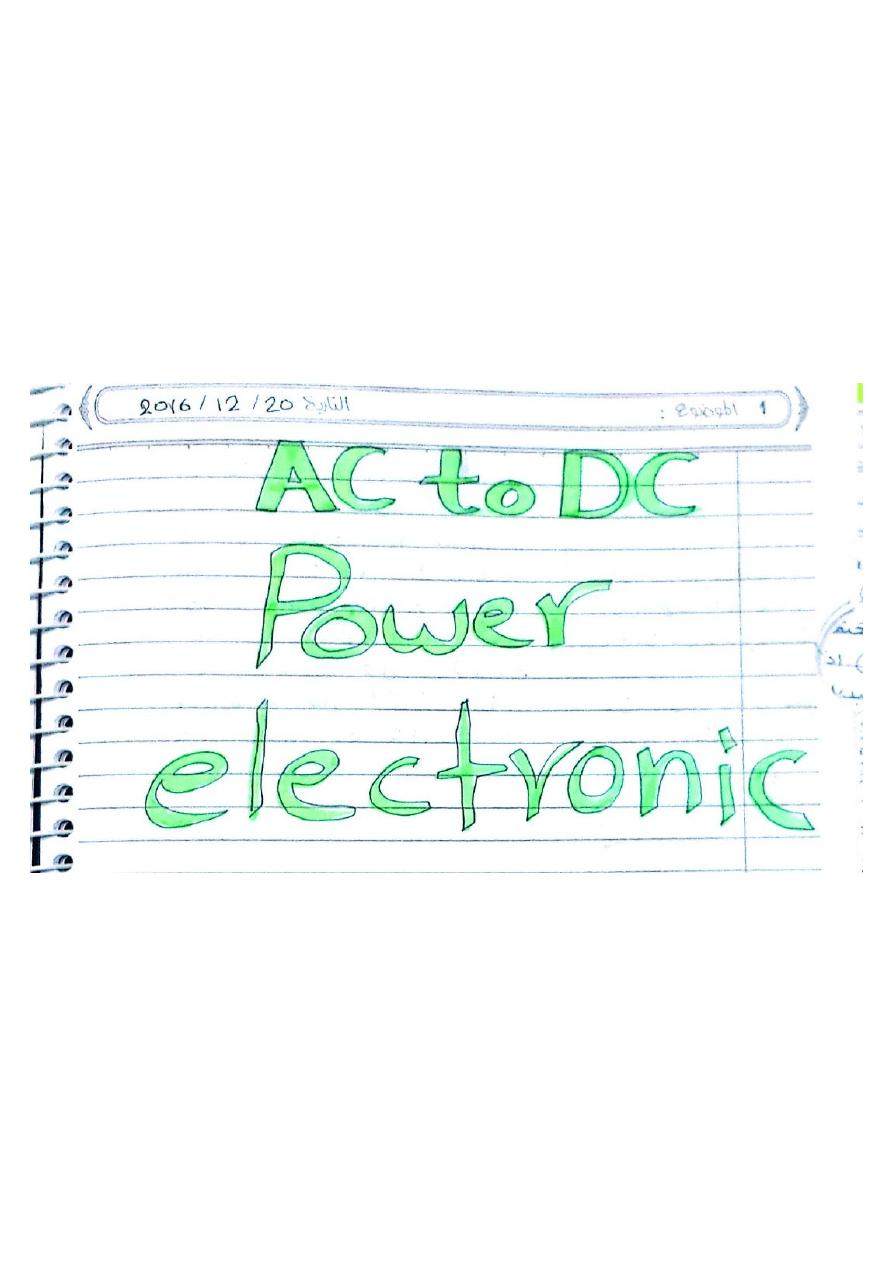 1 الموضوع : التاريخ 2016 / 12 / 20
AC to DC
Power
electronic